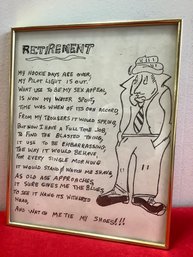 RETIREMENT
MY NOOKIE DAYS ARE OVER,
MY PILOT LIGHT IS OUT.
WHAT USE TO BE MY SEX APPEAL,
IS NOW MY WATER SPOUT,
TIME WAS WHEN OF ITS OWN ACCORD,
FROM MY TROUSERS IT WOULD SPRING,
BUT NOW I HAVE A FULL TIME JOB,
TO FIND THE BLASTED THING,
IT USE TO BE EMBARRASSING,
THE WAY IT WOULD BEHAVE,
FOR EVERY SINGLE MORNING
IT WOULD STAND & WATCH ME SHAVE,
AS OLD AGE APPROACHES,
IT SURE GIVES ME THE BLUES,
TO SEE IT HANG ITS WITHERED
HEAD,
AND WATCH ME TIE MY SHOES!!!